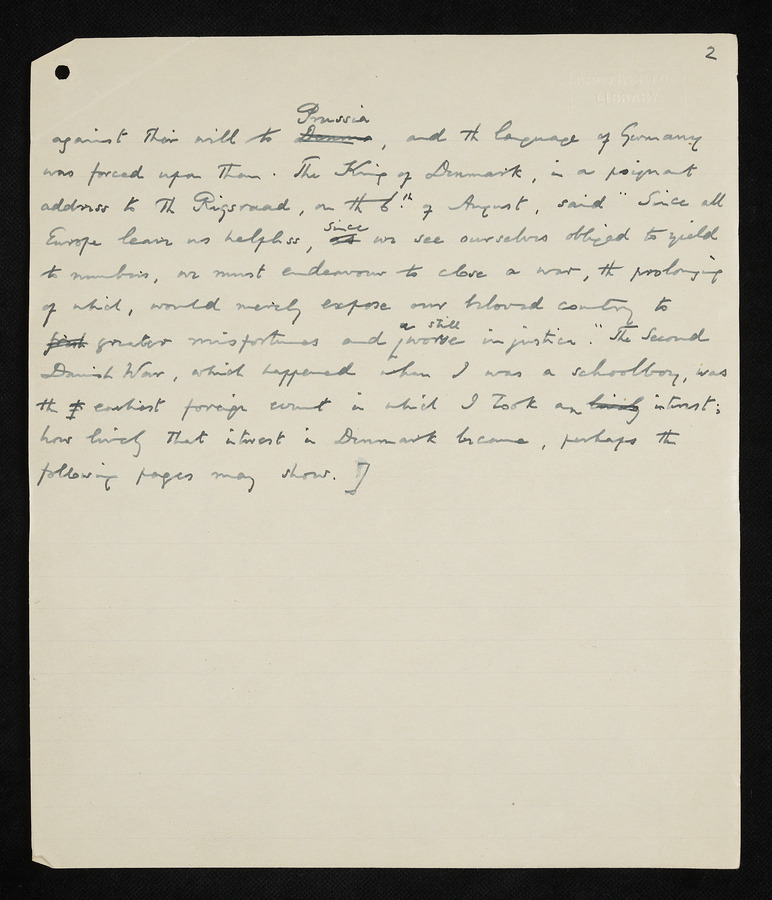 2
against their will to Prussia Denma, and the language of Germany
was forced upon them. The King of Denmark, in a poignant
address to the Rigsraad, on the 6th of August, said "Since all
Europe leaves us helpless, since as we see ourselves obliged to yield
to numbers, we must endeavour to close a war, the prolonging
of which, would merely expose our beloved country to
greater misfortunes and a still worse injustice." The Second
Danish War, which happened when I was a schoolboy, was
the earliest foreign event in which I took an lively interest;
how lively that interest in Denmark became, perhaps the
following pages may show.]